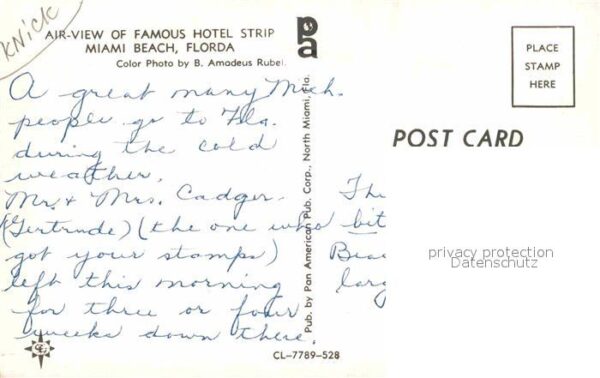 Knick
AIR-VIEW OF FAMOUS HOTEL STRIP
MIAMI BEACH, FLORDA
Color Photo by B. Amadeus Rubel.
A great many Mich.
people go to Fla.
during the cold
weather.
Mr. + Mrs. Cadger.
(Gertrude) (the one who
got your stamps)
left this morning
for three or four
weeks down there.
The
bit
Beac
larg
pa
Pub. by Pan American Pub. Corp., North Miami, Fla.
PLACE
STAMP
HERE
POST CARD
privacy protection
Datenschutz
CL-7789-528